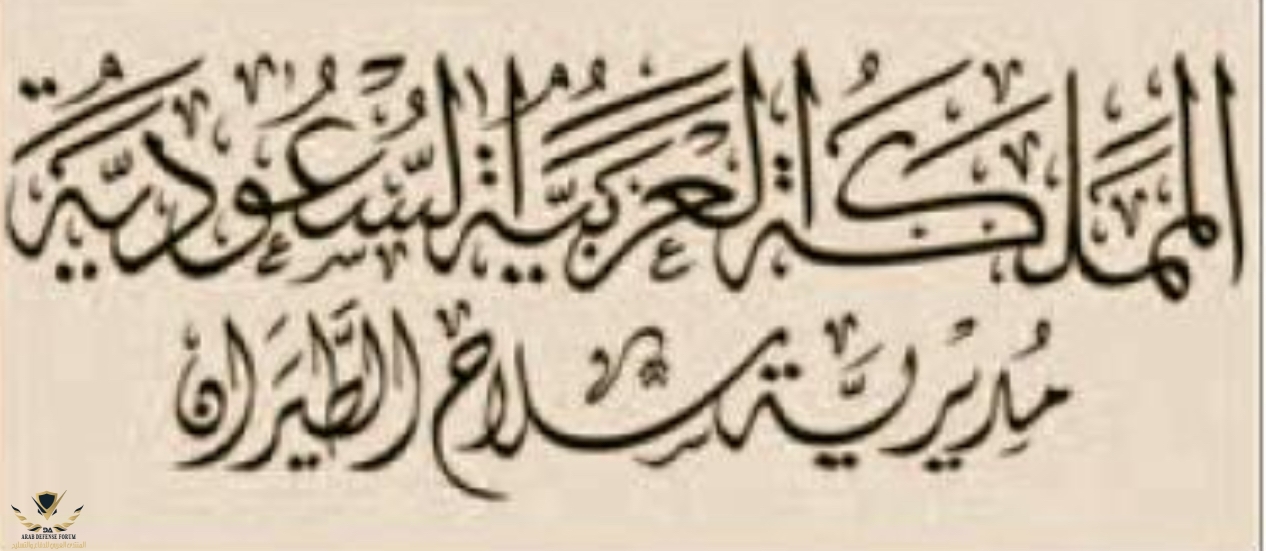 المملكة العربية السعودية
مديرية سلاح الطيران
ARAB DEFENSE FORUM